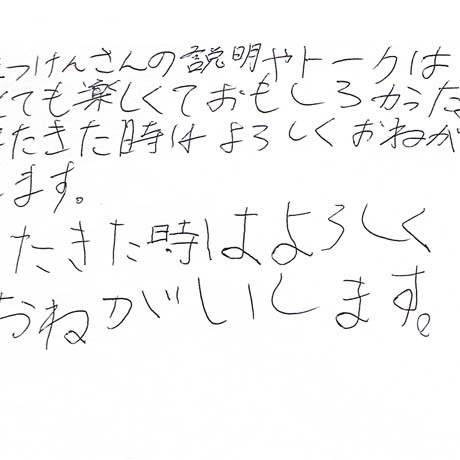 つけんさんの説明やトークは
ても楽しくておもしろかった
たきた時はよろしくおねが
します。
たきた時はよろしく
おねがいします。